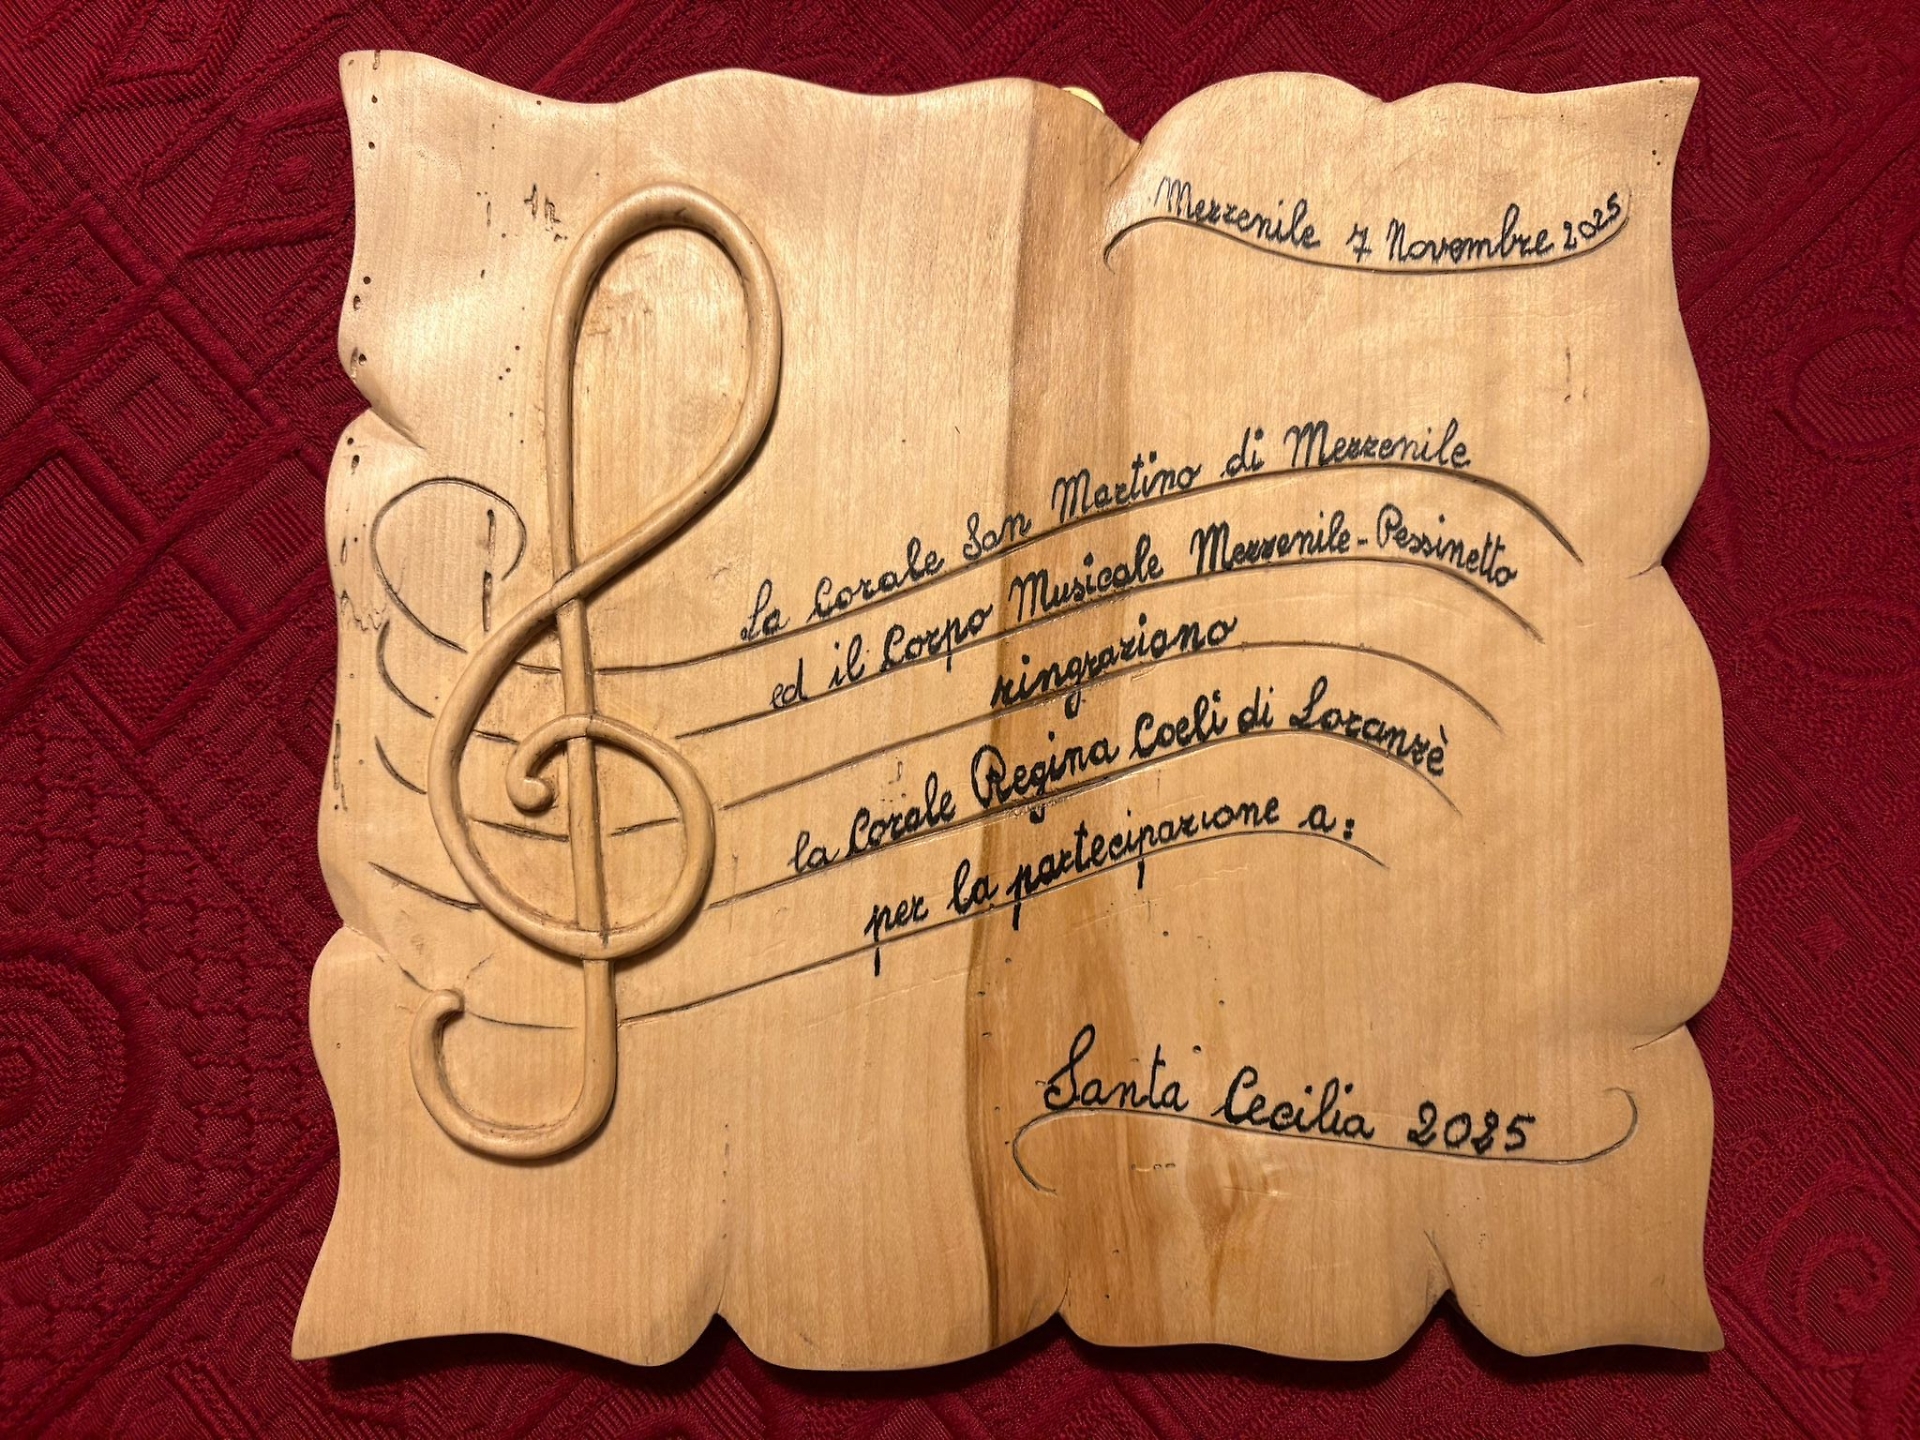 Mezzenile 7 Novembre 2025
La Corale San Martino di Mezzenile
ed il Corpo Musicale Mezzenile-Pessinetto
ringraziano
la Corale Regina Coeli di Loranzè
per la partecipazione a:
Santa Cecilia 2025